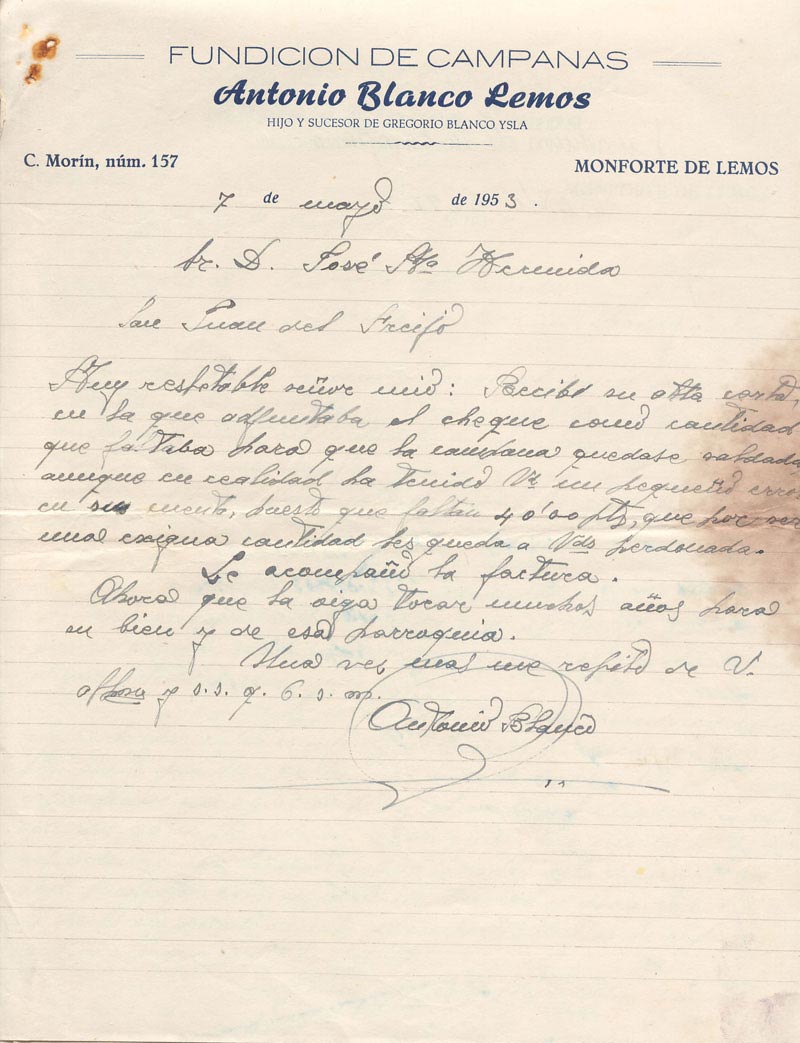 FUNDICION DE CAMPANAS
Antonio Blanco Lemos
HIJO Y SUCESOR DE GREGORIO BLANCO YSLA
C. Morín, núm. 157
MONFORTE DE LEMOS
7 de mayo de 1953.
Sr. D. José Mª Hermida
San Juan del Freijo
Muy respetable señor mio: Recibí su atta carta,
en la que adjuntaba el cheque como cantidad
que faltaba para que la campana quedase saldada
aunque en realidad ha tenido Vd un pequeño error
en su cuenta, puesto que faltan 40'00 pts, que por ser
una exigua cantidad les queda a Vds perdonada.
Le acompaño la factura.
Ahora que la oiga tocar muchos años para
su bien y de esa parroquia.
Una vez mas me repito de V.
y s.s. q. b. s. m.
Antonio Blanco